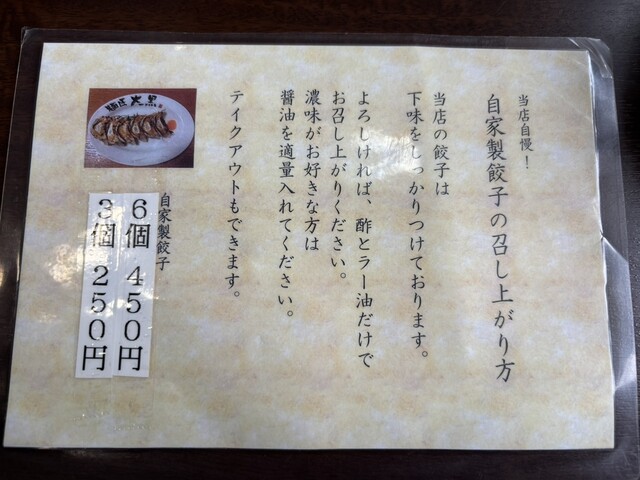 当店自慢！
自家製餃子の召し上がり方
当店の餃子は
下味をしっかりつけております。
よろしければ、酢とラー油だけで
お召し上がりください。
濃味がお好きな方は
醤油を適量入れてください。
テイクアウトもできます。
自家製餃子
6個 450円
3個 250円